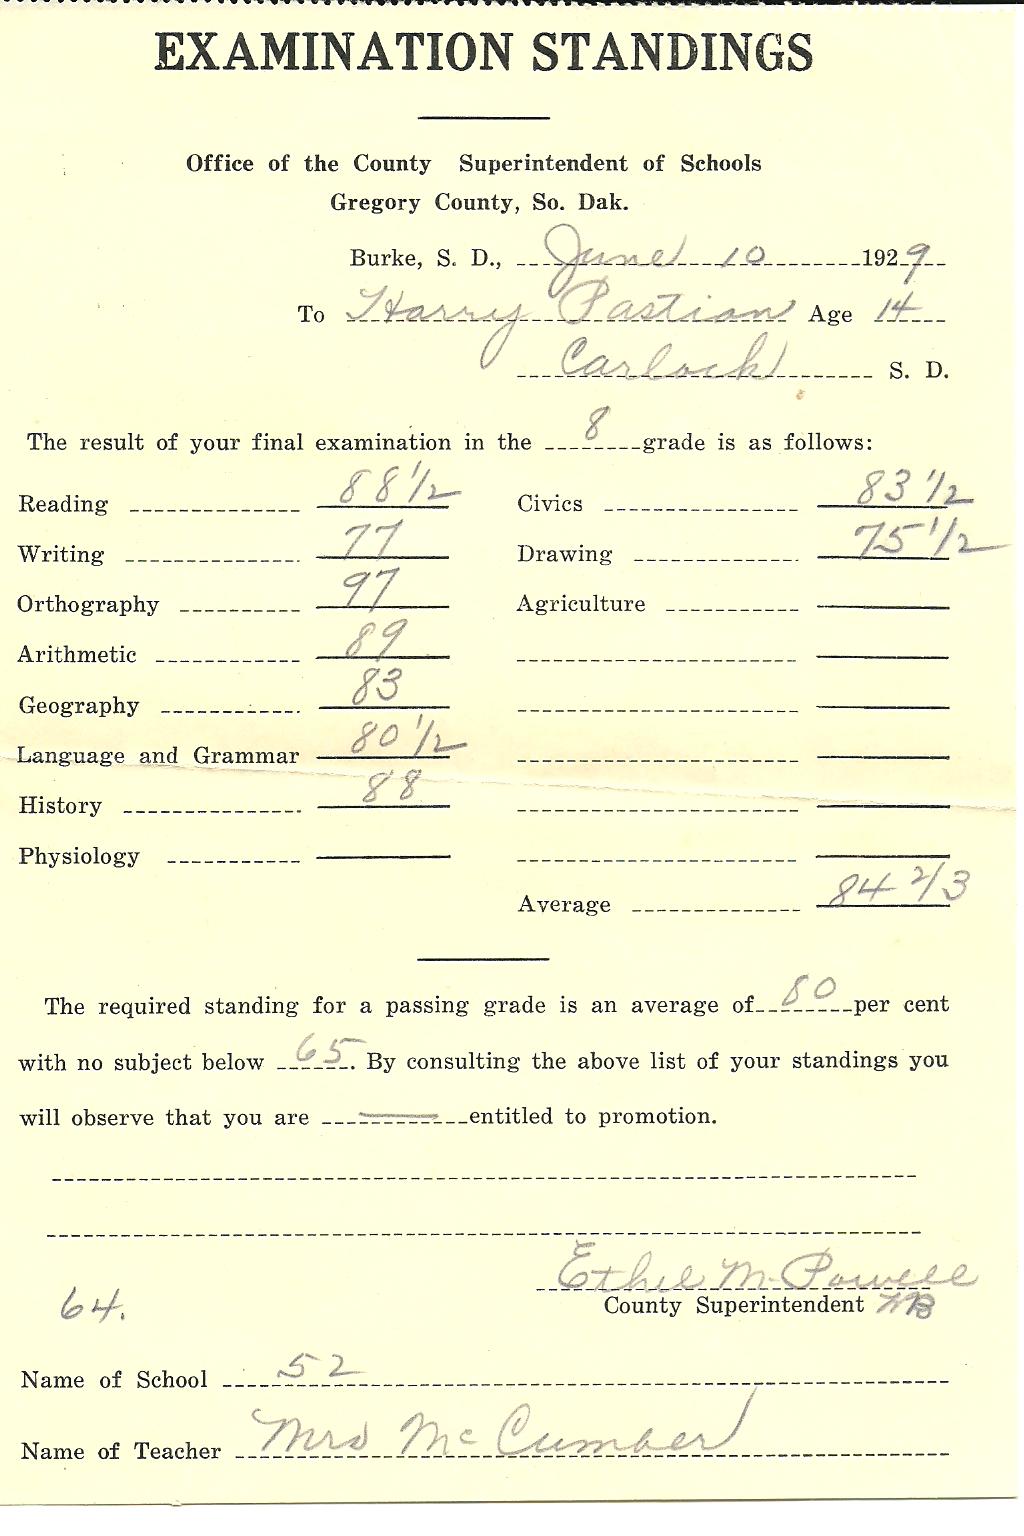 EXAMINATION STANDINGS
Office of the County Superintendent of Schools
Gregory County, So. Dak.
Burke, S. D., June 10 1929
To Harry Pastian Age 14
Carlock S. D.
The result of your final examination in the 8 grade is as follows:
Reading 88 1/2 Civics 83 1/2
Writing 77 Drawing 75 1/2
Orthography 97 Agriculture
Arithmetic 89
Geography 83
Language and Grammar 80 1/2
History 88
Physiology
Average 84 2/3
The required standing for a passing grade is an average of 80 per cent
with no subject below 65. By consulting the above list of your standings you
will observe that you are entitled to promotion.
Ethel M. Powell
64. County Superintendent
Name of School 52
Name of Teacher Mrs McCumber